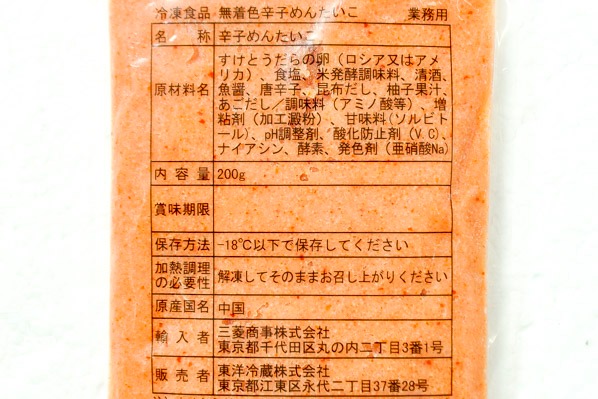 冷凍食品 無着色辛子めんたいこ 業務用
名称 辛子めんたいこ
原材料名 すけとうだらの卵（ロシア又はアメ
リカ）、食塩、米発酵調味料、清酒、
魚醤、唐辛子、昆布だし、柚子果汁、
あごだし／調味料（アミノ酸等）、増
粘剤（加工澱粉）、甘味料(ソルビト
ール)、pH調整剤、酸化防止剤（V.C)、
ナイアシン、酵素、発色剤（亜硝酸Na)
内容量 200g
賞味期限
保存方法 -18℃以下で保存してください
加熱調理
の必要性 解凍してそのままお召し上がりください
原産国名 中国
輸入者 三菱商事株式会社
東京都千代田区丸の内二丁目3番1号
販売者 東洋冷蔵株式会社
東京都江東区永代二丁目37番28号